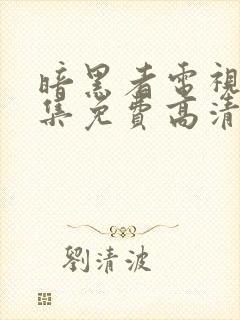 暗黑者電視
集免費高清
劉清波